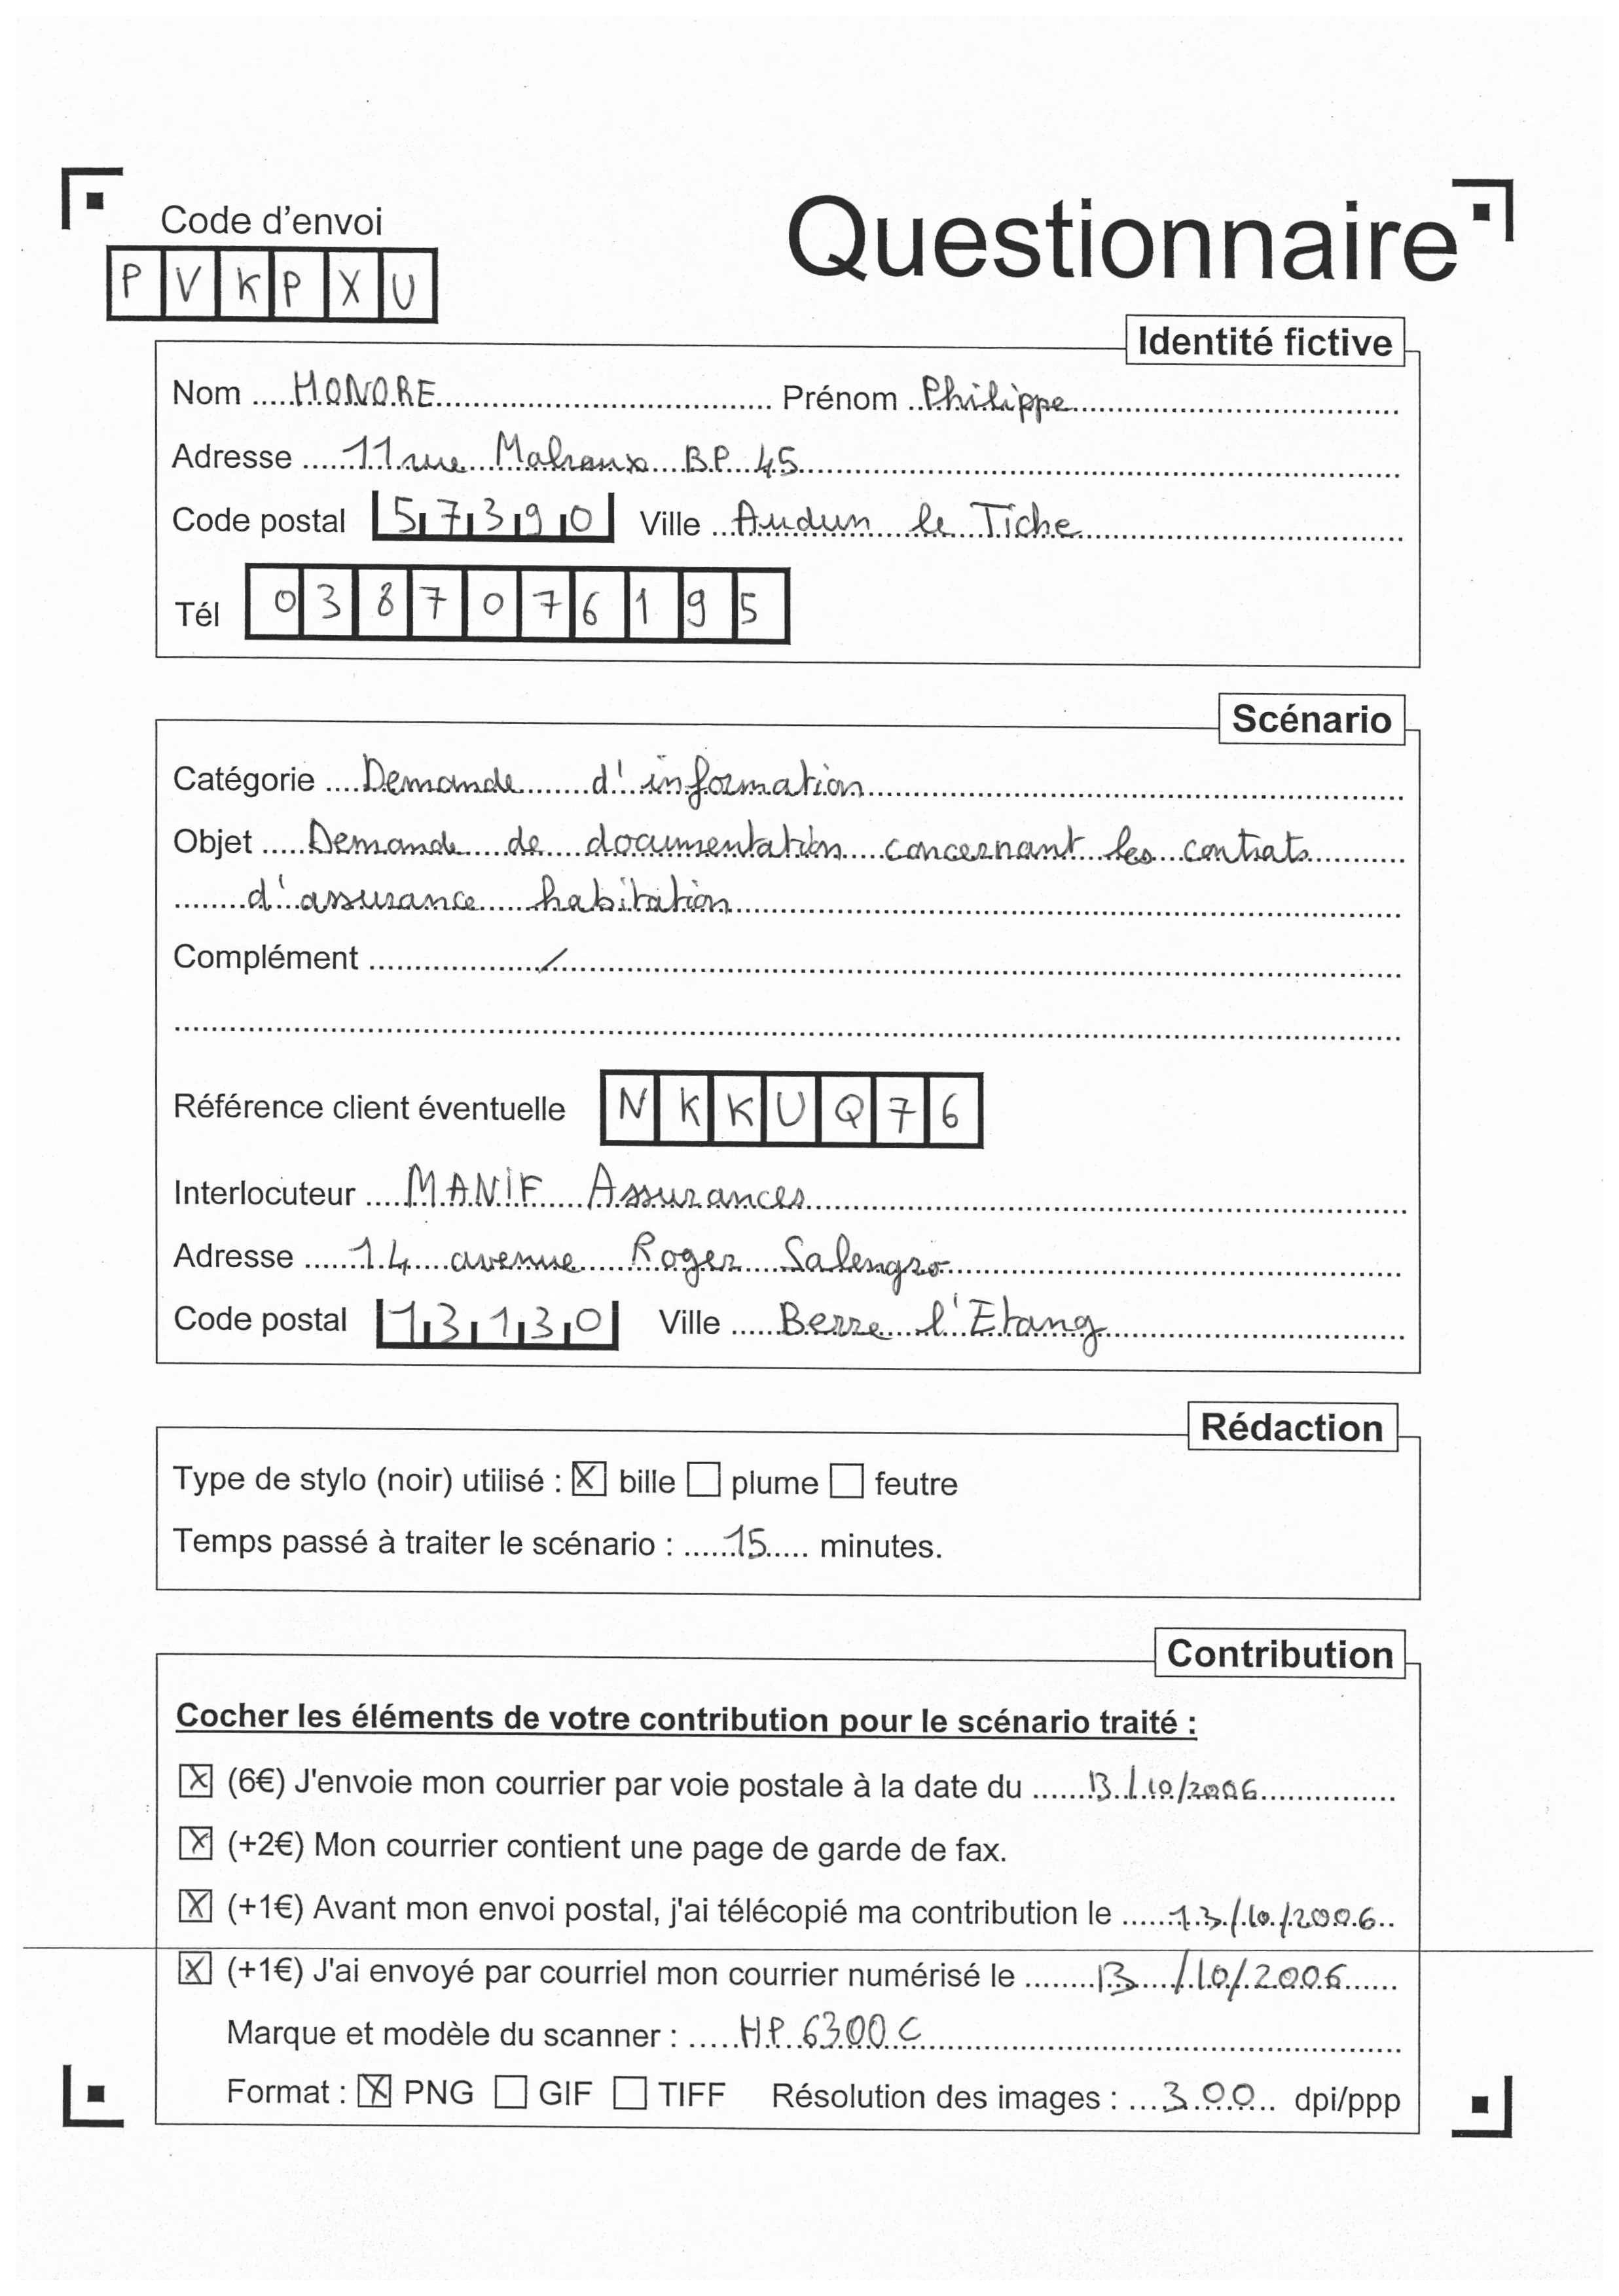 Code d'envoi
Questionnaire
P V K P X U
Identité fictive
Nom HONORE Prénom Philippe
Adresse 11 rue Malraux BP 45
Code postal 57390 Ville Audun le Tiche
Tél 0387076195
Scénario
Catégorie Demande d'information
Objet Demande de documentation concernant les contrats
d'assurance habitation
Complément /
Référence client éventuelle N K K U Q 7 6
Interlocuteur MANIF Assurances
Adresse 14 avenue Roger Salengro
Code postal 13130 Ville Berre l'Etang
Rédaction
Type de stylo (noir) utilisé : ☒ bille ☐ plume ☐ feutre
Temps passé à traiter le scénario : 15 minutes.
Contribution
Cocher les éléments de votre contribution pour le scénario traité :
☒ (6€) J'envoie mon courrier par voie postale à la date du 13/10/2006
☒ (+2€) Mon courrier contient une page de garde de fax.
☒ (+1€) Avant mon envoi postal, j'ai télécopié ma contribution le 13/10/2006
☒ (+1€) J'ai envoyé par courriel mon courrier numérisé le 13/10/2006
Marque et modèle du scanner : HP 6300 C
Format : ☒ PNG ☐ GIF ☐ TIFF Résolution des images : 300 dpi/ppp